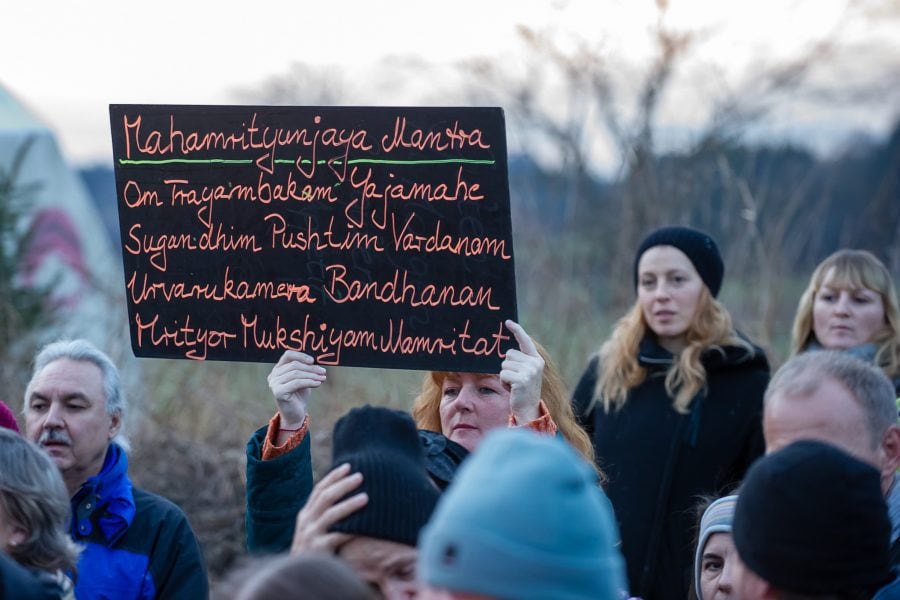 Mahamrityunjaya Mantra
Om Trayarmbakam Yajamahe
Sugandhim Pushtim Vardanam
Urvarukamera Bandhanan
Mrityor Mukshiyam Mamritat